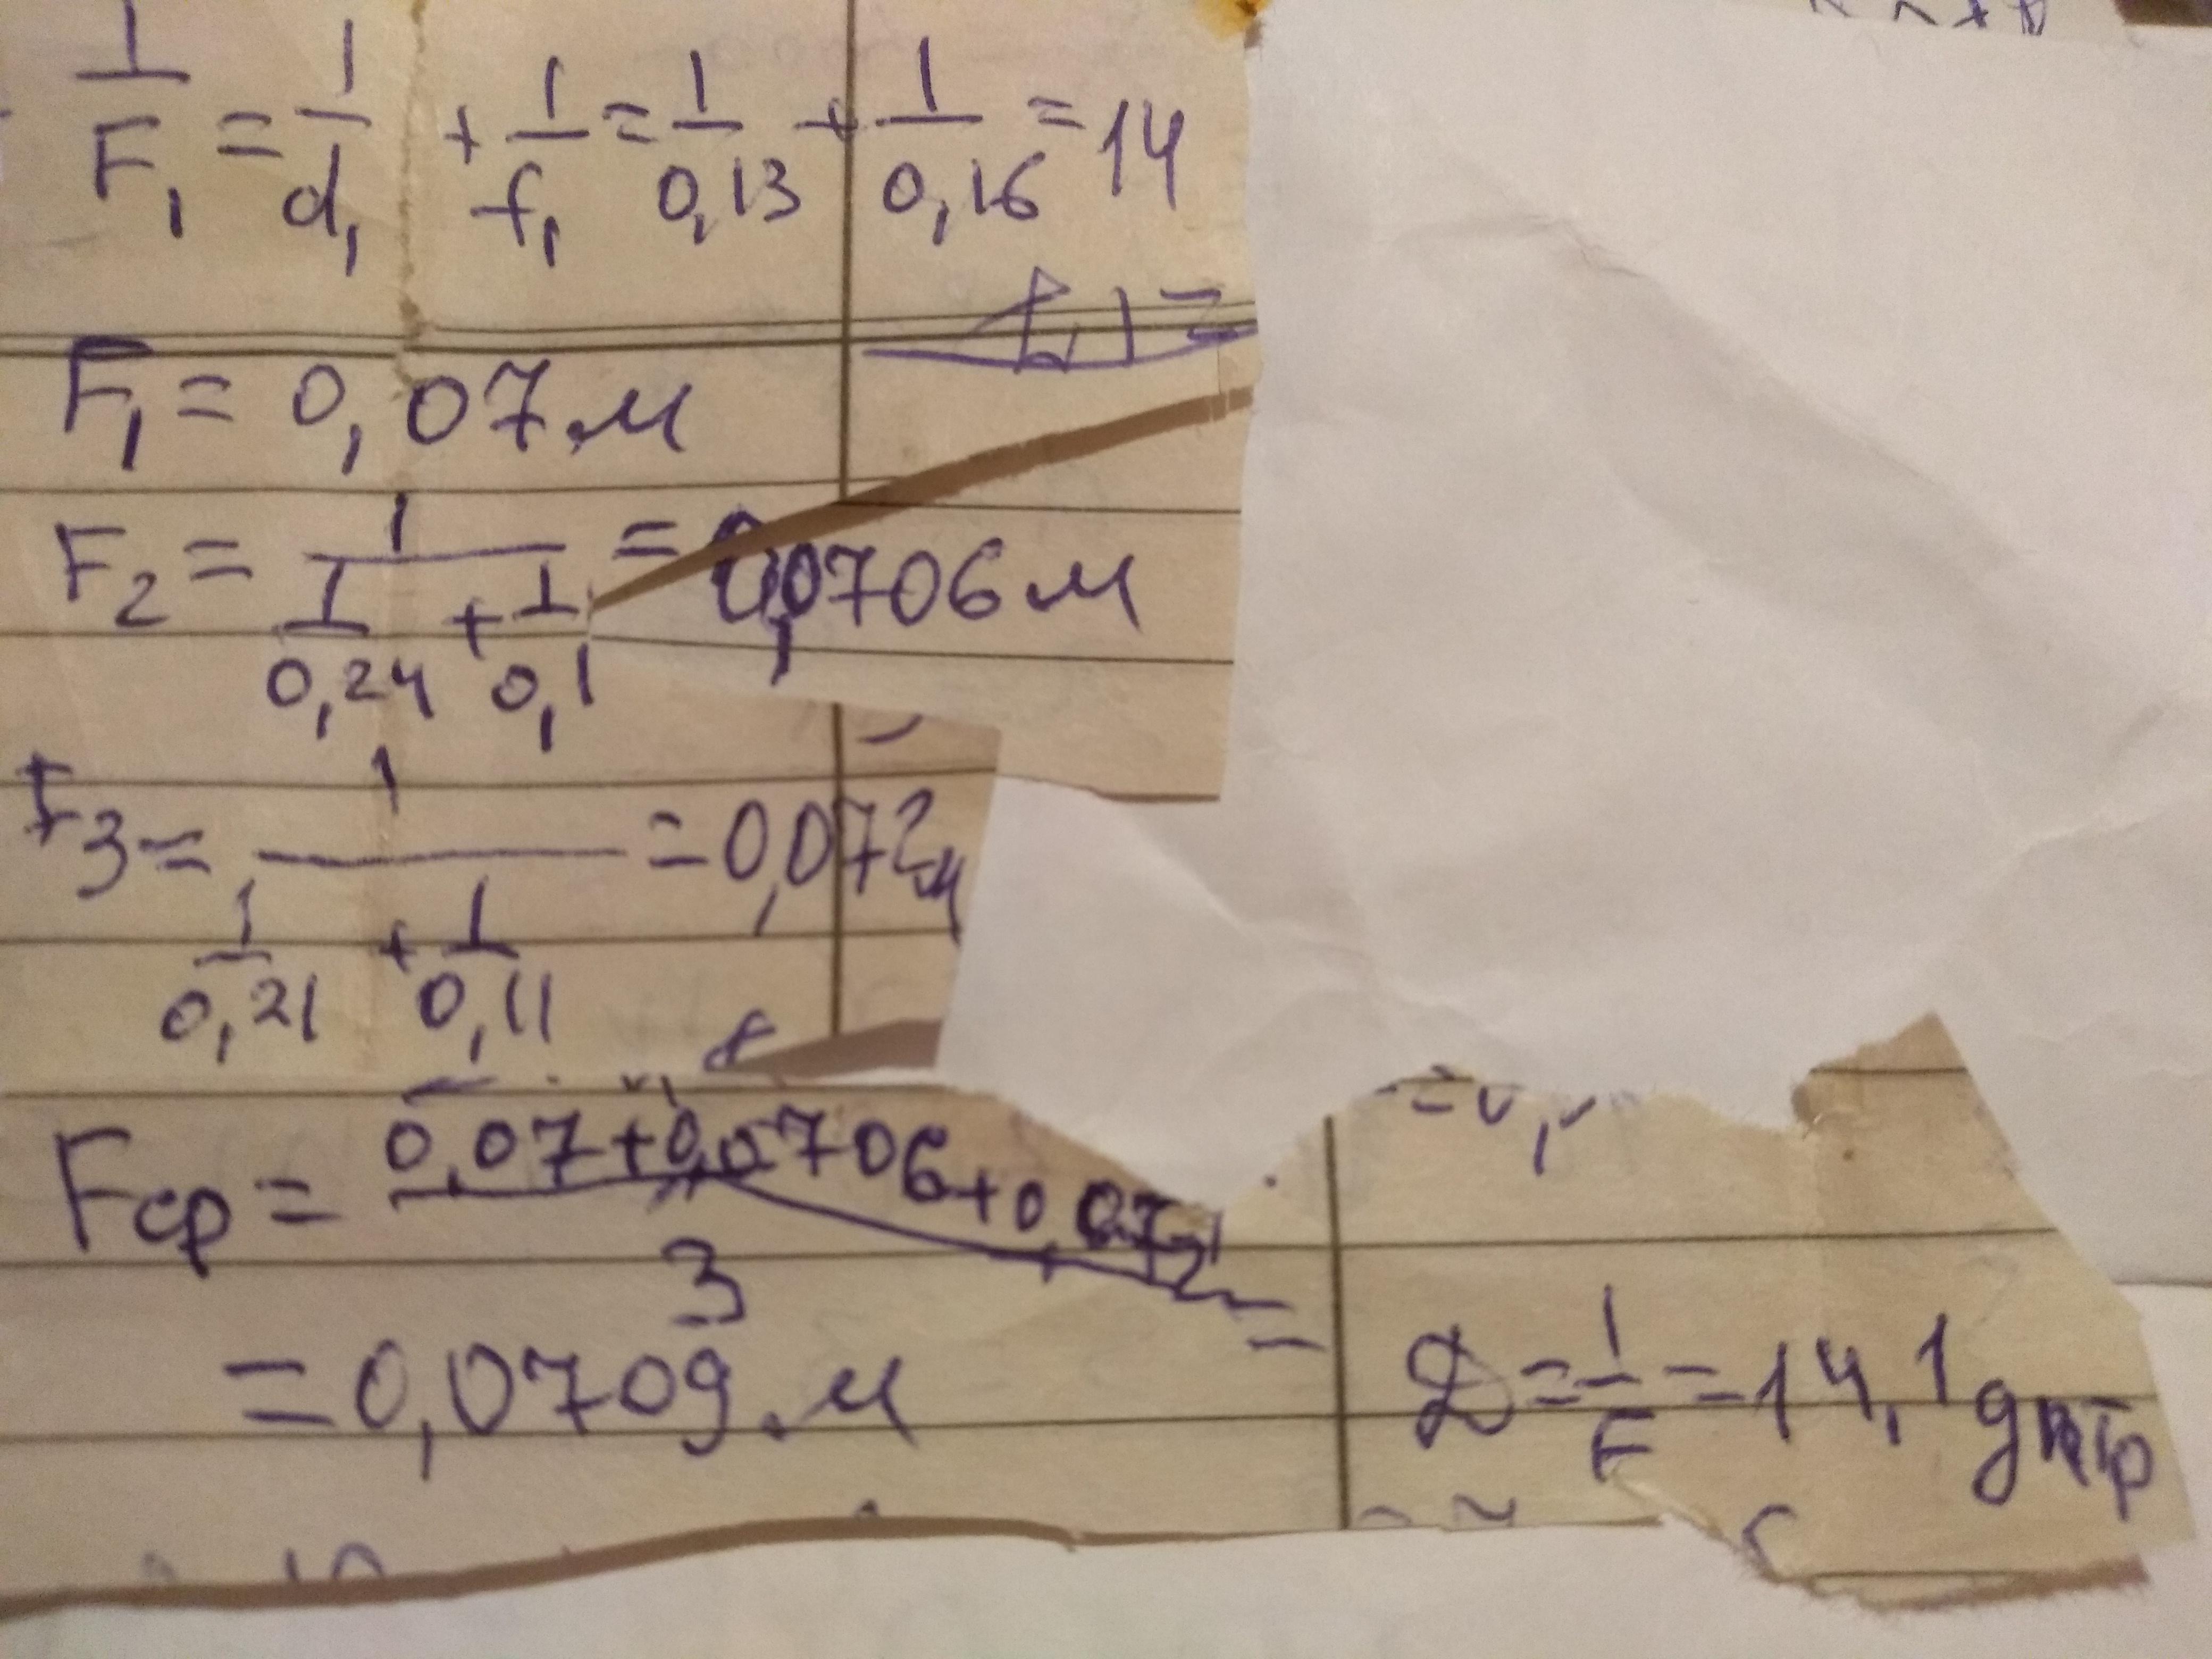 1/F₁ = 1/d₁ + 1/f₁ = 1/0,13 + 1/0,16 = 14
F₁ = 0,07 м
F₂ = 1/(1/0,24 + 1/0,1) = 0,0706 м
F3 = 1/(1/0,21 + 1/0,11) = 0,072 м
Fср = (0,07+0,0706+0,072)/3 =
= 0,0709 м
D = 1/F = 14,1 дптр